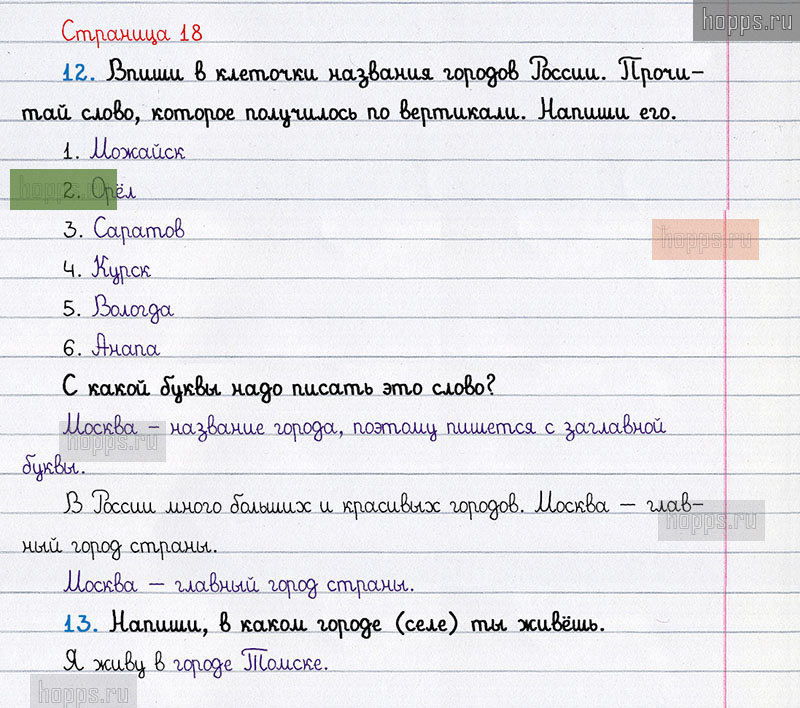 hopps.ru
Страница 18
12. Впиши в клеточки названия городов России. Прочи-
тай слово, которое получилось по вертикали. Напиши его.
1. Можайск
hopps.ru
2. Орёл
3. Саратов
hopps.ru
4. Курск
5. Вологда
6. Анапа
С какой буквы надо писать это слово?
Москва – название города, поэтому пишется с заглавной
hopps.ru
буквы.
В России много больших и красивых городов. Москва – глав-
hopps.ru
ный город страны.
Москва – главный город страны.
13. Напиши, в каком городе (селе) ты живёшь.
Я живу в городе Томске.
hopps.ru